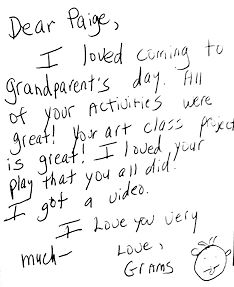 Dear Paige,
I loved coming to
grandparent's day. All
of your activities were
great! Your art class project
is great! I loved your
play that you all did.
I got a video.
I Love you very
much—
Love,
Grams